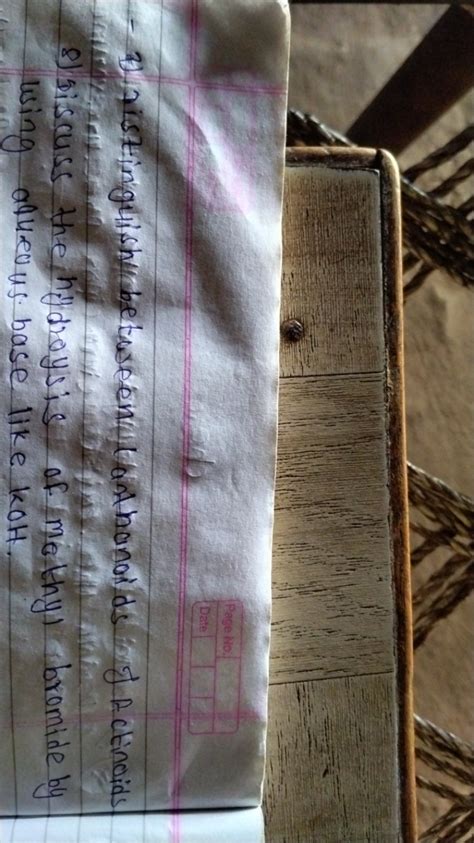 Page No.
Date
7) Distinguish between Lanthanoids & Actinoids
8) Discuss the hydroysis of methyl bromide by
using aqueous base like KOH.